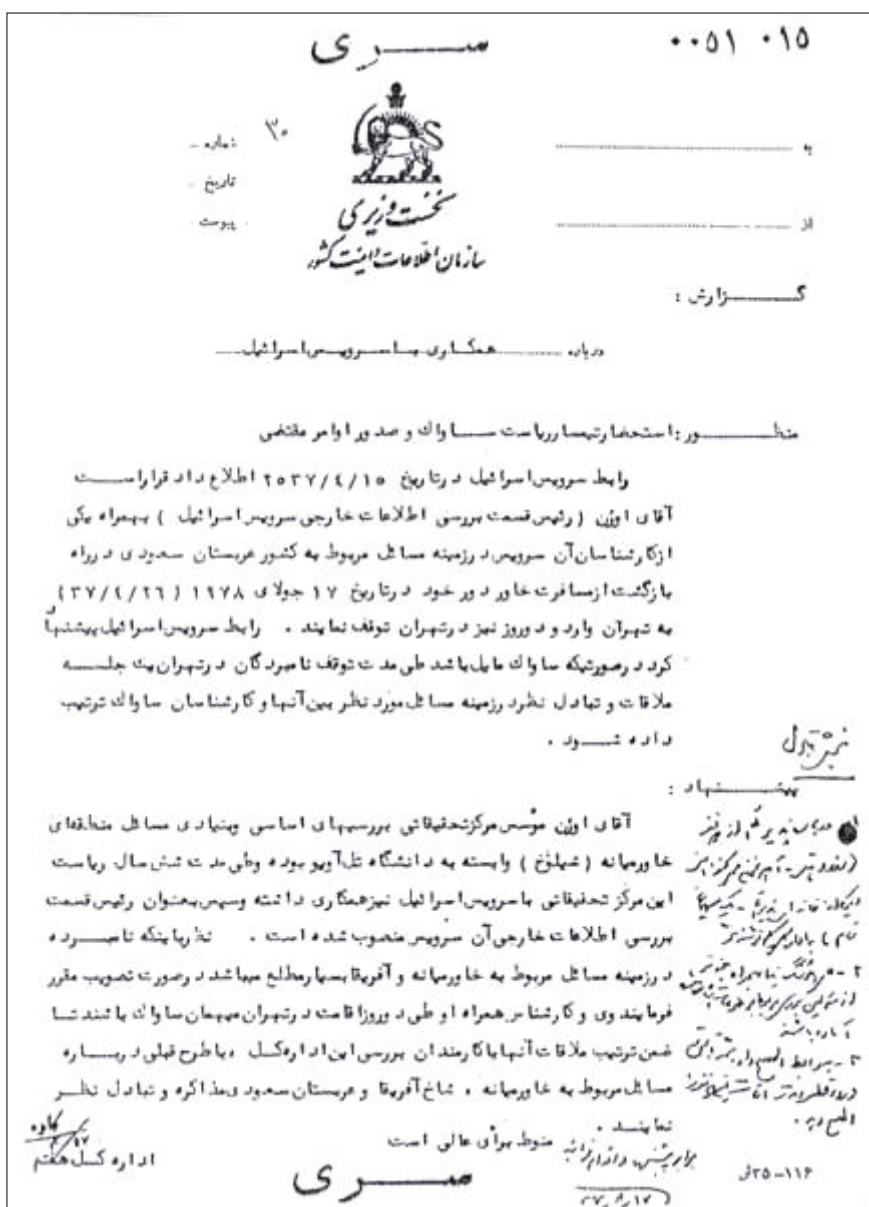 سری
۰۰۵۱ ۰۱۵
به
شماره ۳۰
تاریخ
از
پیوست
نخست وزیری
سازمان اطلاعات و امنیت کشور
گزارش :
درباره همکاری با سرویس اسرائیل
منظور : استحضار تیمسار ریاست ساواك و صدور اوامر مقتضی
رابط سرویس اسرائیل در تاریخ ۲۵۳۷/۴/۱۵ اطلاع داد قرار است
آقای اوزن ( رئیس قسمت بررسی اطلاعات خارجی سرویس اسرائیل ) بهمراه یکی
از کارشناسان آن سرویس در زمینه مسائل مربوط به کشور عربستان سعودی در راه
بازگشت از مسافرت خاور دور خود در تاریخ ۱۷ جولای ۱۹۷۸ ( ۳۷/۴/۲۶ )
به تهران وارد و دو روز نیز در تهران توقف نمایند . رابط سرویس اسرائیل پیشنهاد
کرد در صورتیکه ساواك مایل باشد طی مدت توقف نامبردگان در تهران یك جلسه
ملاقات و تبادل نظر در زمینه مسائل مورد نظر بین آنها و کارشناسان ساواك ترتیب
داده شود .
پیشنهاد :
آقای اوزن مؤسس مرکز تحقیقاتی بررسیهای اساسی وبنیادی مسائل منطقه‌ای
خاورمیانه ( شیلوخ ) وابسته به دانشگاه تل‌آویو بوده وطی مدت شش سال ریاست
این مرکز تحقیقاتی با سرویس اسرائیل نیز همکاری داشته وسپس بعنوان رئیس قسمت
بررسی اطلاعات خارجی آن سرویس منصوب شده است . نظر باینکه نامبرده
در زمینه مسائل مربوط به خاورمیانه و آفریقا بسیار مطلع میباشد در صورت تصویب مقرر
فرمایند وی و کارشناس همراه او طی دو روز اقامت در تهران میهمان ساواك باشند تا
ضمن ترتیب ملاقات آنها با کارمندان بررسی این اداره کل ، با طرح قبلی درباره
مسائل مربوط به خاورمیانه ، شاخ آفریقا و عربستان سعودی مذاکره و تبادل نظر
نمایند .
منوط برأی عالی است
اداره کل هفتم
۳۵-۱۱۶
سری